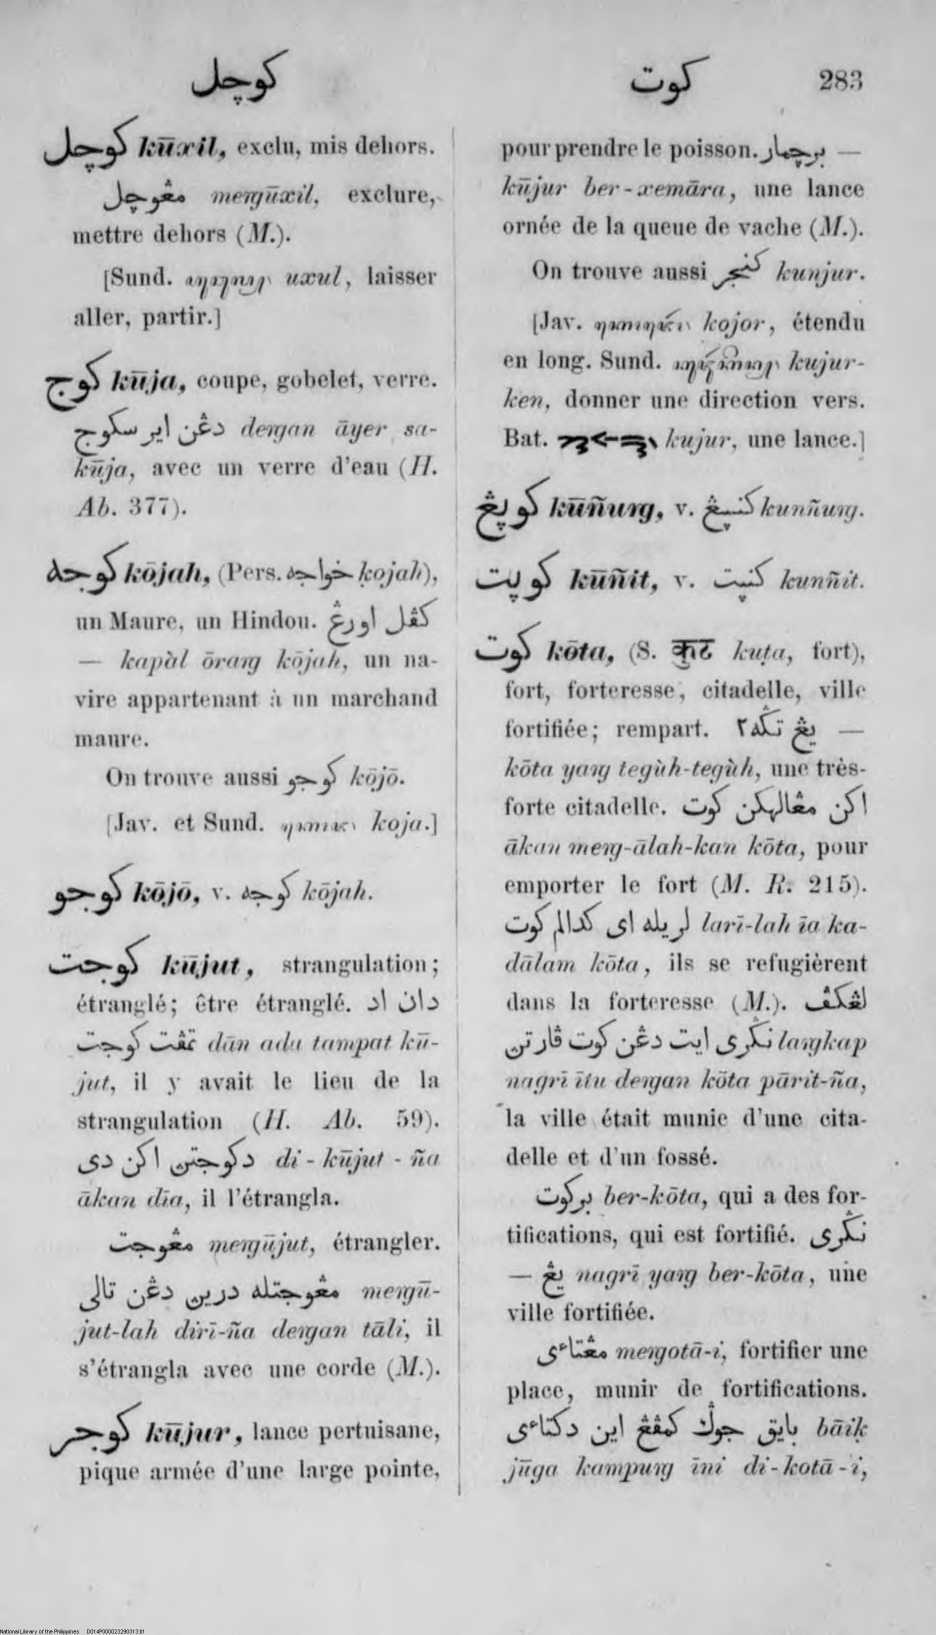 كوچل
كوت
283
كوچل kūxil, exclu, mis dehors.
مڠوچل meŋūxil, exclure,
mettre dehors (M.).
[Sund. uxul, laisser
aller, partir.]
كوج kūja, coupe, gobelet, verre.
دڠن اير سكوج deŋan āyer sa-
kūja, avec un verre d'eau (H.
Ab. 377).
كوجه kōjah, (Pers. خواجه ḳojah),
un Maure, un Hindou. كڤل اورڠ
— kapàl ōraŋ kōjah, un na-
vire appartenant à un marchand
maure.
On trouve aussi كوجو kōjō.
[Jav. et Sund. koja.]
كوجو kōjō, v. كوجه kōjah.
كوجت kūjut, strangulation;
étranglé; être étranglé. دان اد
تمڤت كوجت dān ada tampat kū-
jut, il y avait le lieu de la
strangulation (H. Ab. 59).
دكوجتن اكن دى di-kūjut-ña
ākan dīa, il l'étrangla.
مڠوجت meŋūjut, étrangler.
مڠوجتله درين دڠن تالى meŋū-
jut-lah dirī-ña deŋan tāli, il
s'étrangla avec une corde (M.).
كوجر kūjur, lance pertuisane,
pique armée d'une large pointe,
pour prendre le poisson. برچمار —
kūjur ber-xemāra, une lance
ornée de la queue de vache (M.).
On trouve aussi كنجر kunjur.
[Jav. kojor, étendu
en long. Sund. kujur-
ken, donner une direction vers.
Bat. kujur, une lance.]
كوڽڠ kūñuŋ, v. كنڽڠ kunñuŋ.
كوڽت kūñit, v. كنڽت kunñit.
كوت kōta, (S. कुट kuṭa, fort),
fort, forteresse, citadelle, ville
fortifiée; rempart. يڠ تݢه٢ —
kōta yaŋ tegùh-tegùh, une très-
forte citadelle. اكن مڠالهكن كوت
ākan meŋ-ālah-kan kōta, pour
emporter le fort (M. R. 215).
لريله اى كدالم كوت larī-lah īa ka-
dālam kōta, ils se refugièrent
dans la forteresse (M.). لڠكڤ
نݢرى ايت دڠن كوت ڤارتن laŋkap
nagrī ītu deŋan kōta pārit-ña,
la ville était munie d'une cita-
delle et d'un fossé.
بركوت ber-kōta, qui a des for-
tifications, qui est fortifié. نݢرى
— يڠ nagrī yaŋ ber-kōta, une
ville fortifiée.
مڠتاءى meŋotā-i, fortifier une
place, munir de fortifications.
بايق جوݢ كمڤڠ اين دكتاءى bāiḳ
jūga kampuŋ īni di-kotā-i,
National Library of the Philippines